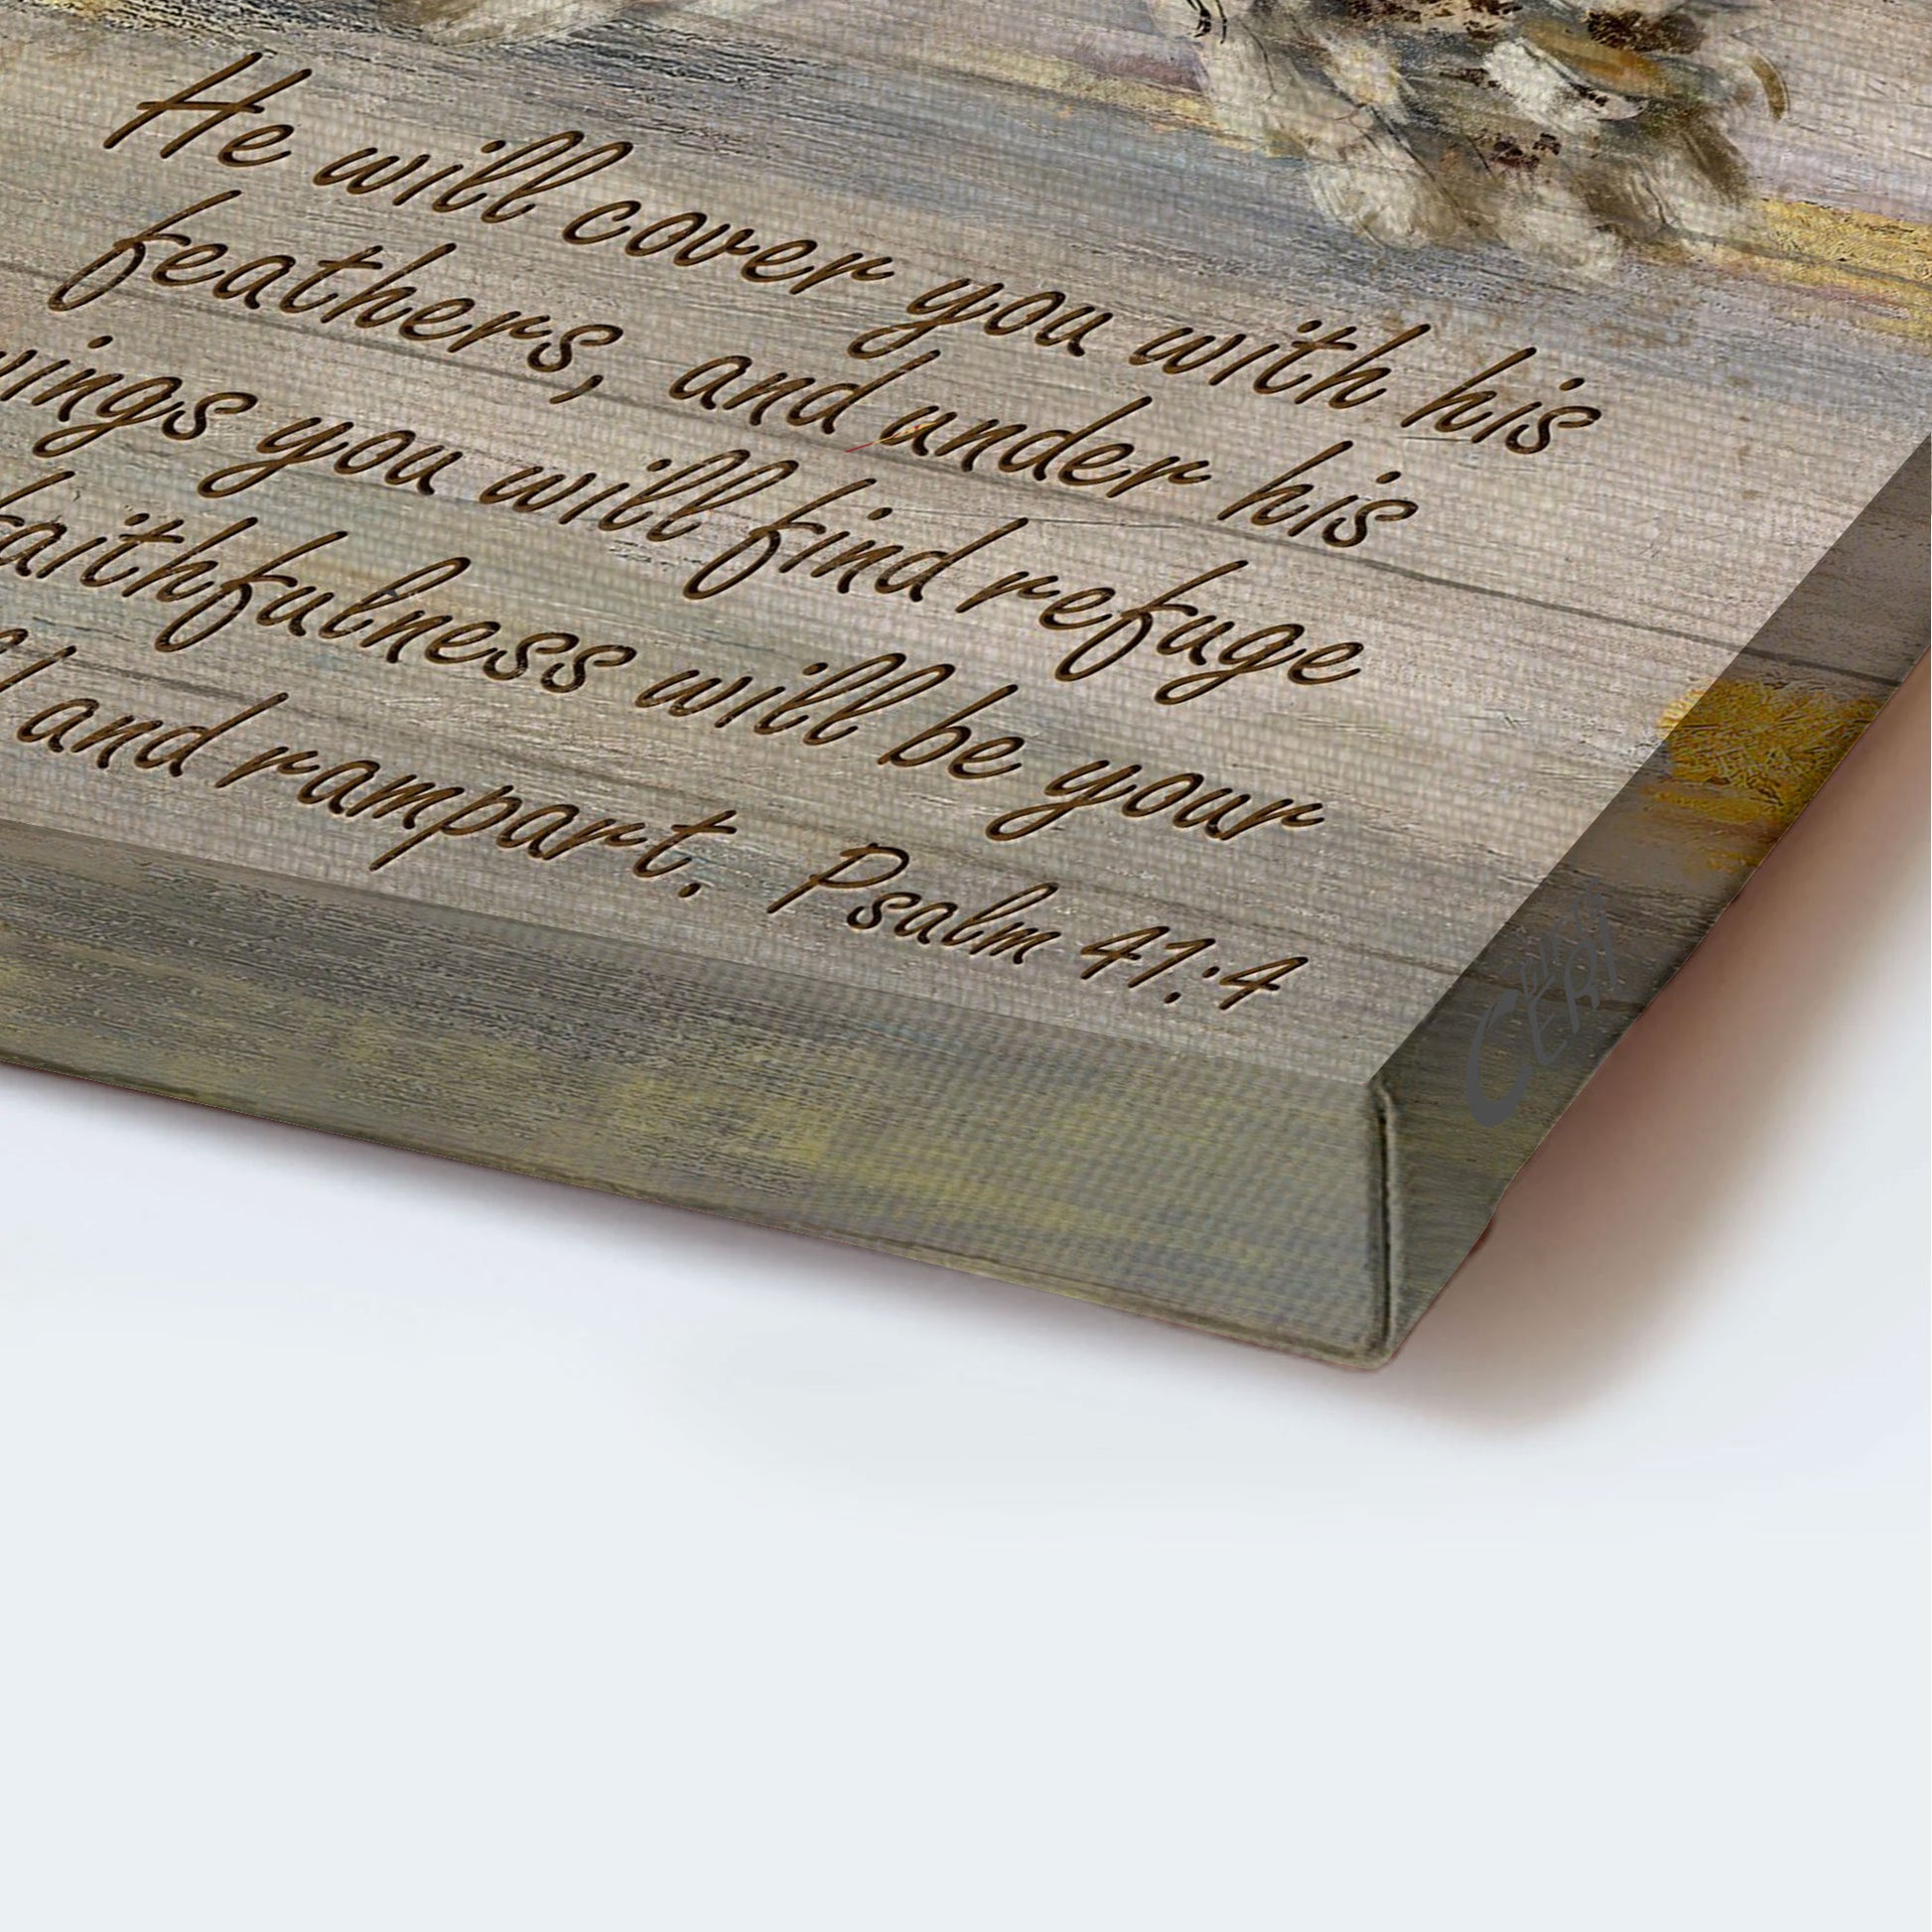 He will cover you with his
feathers, and under his
you will find refuge
faithfulness will be your
and rampart. Psalm 41:4